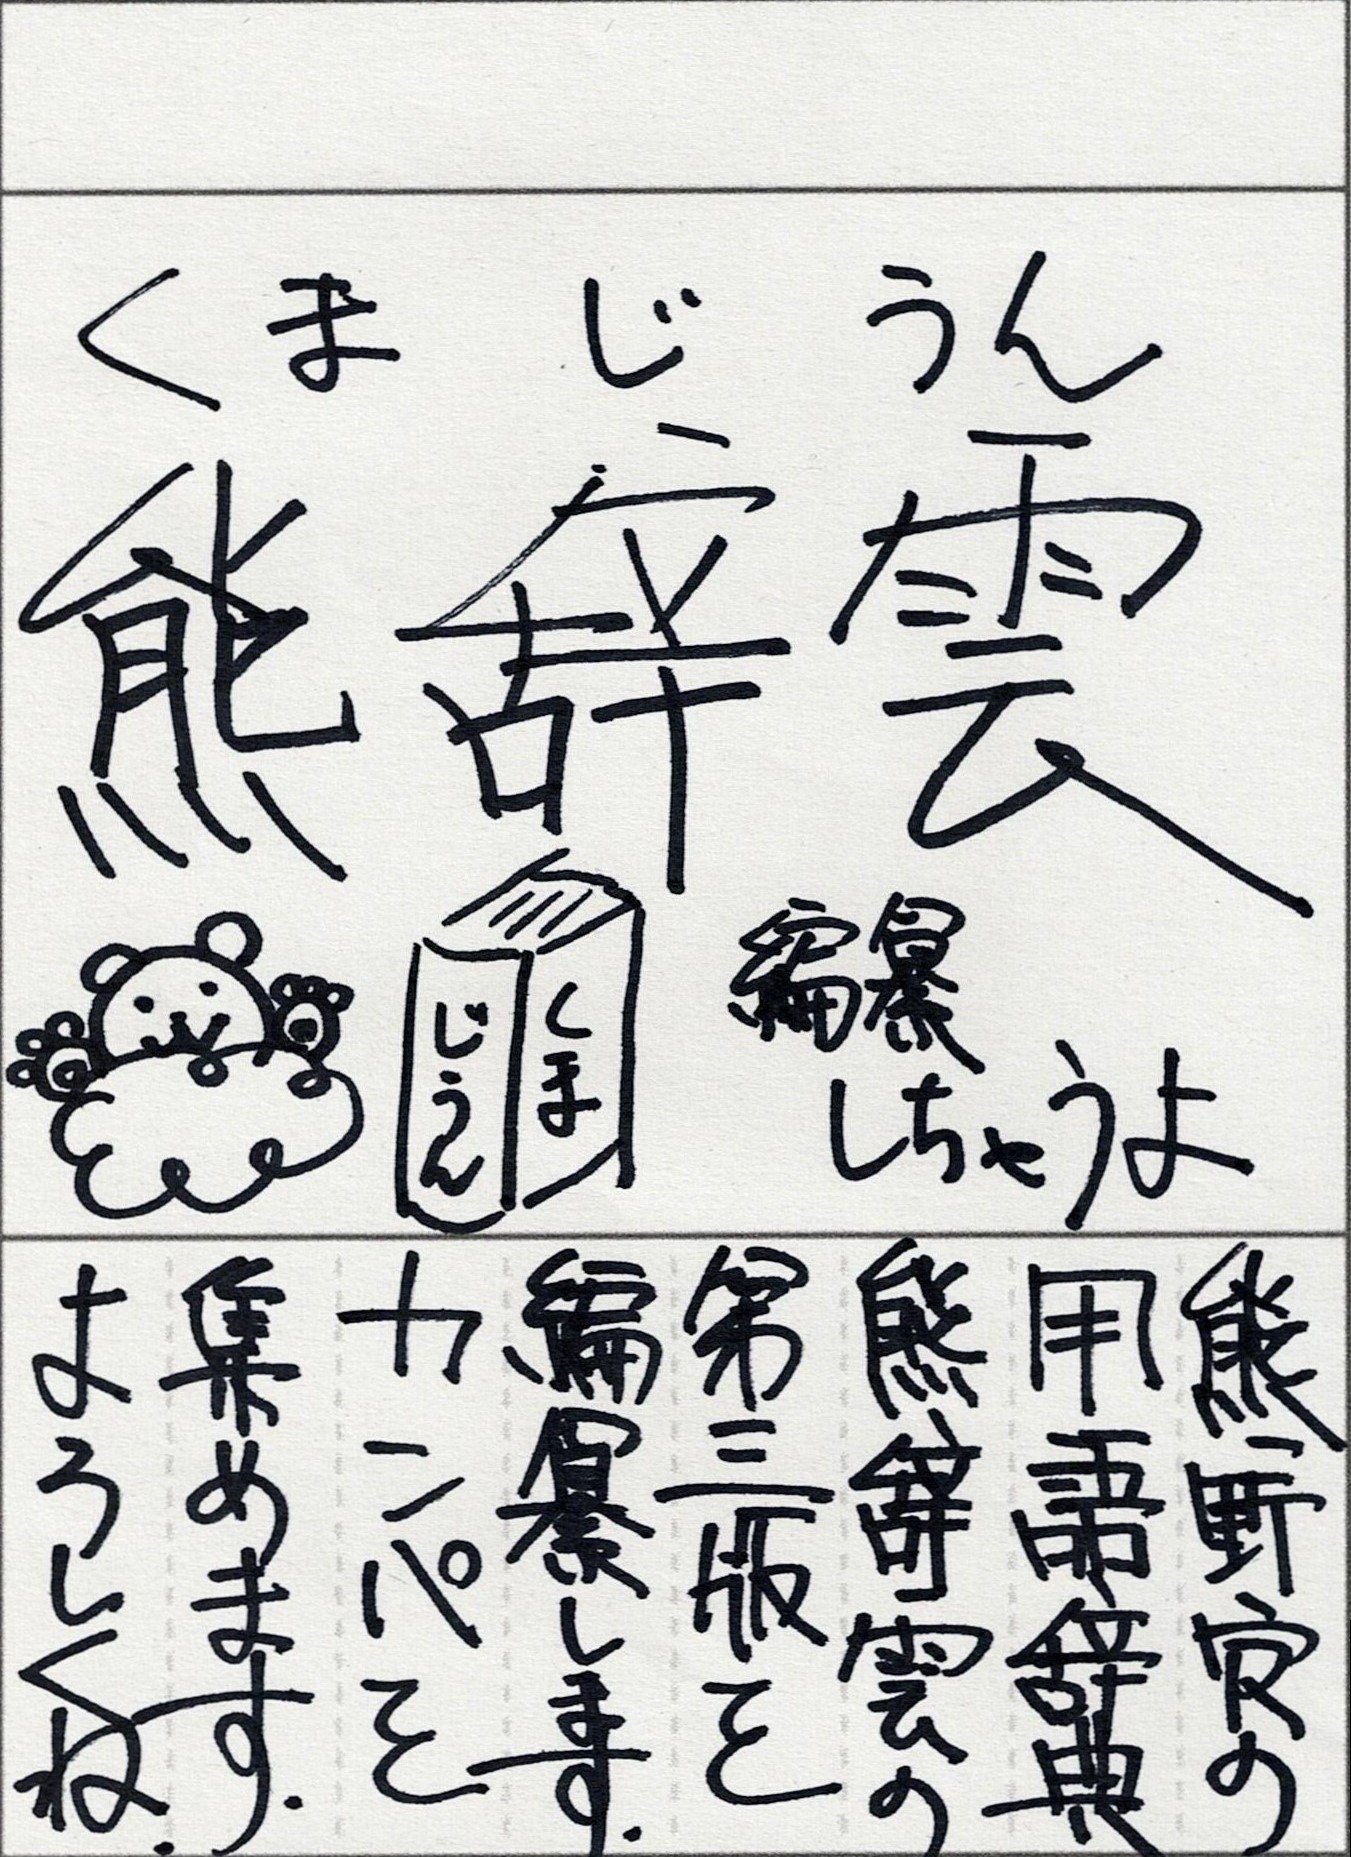 くまじうん
熊辞雲
じうん
くま
編纂
しちゃうよ
熊野寮の
用語辞典
熊辞雲の
第三版を
編纂します.
カンパを
集めます.
よろしくね.